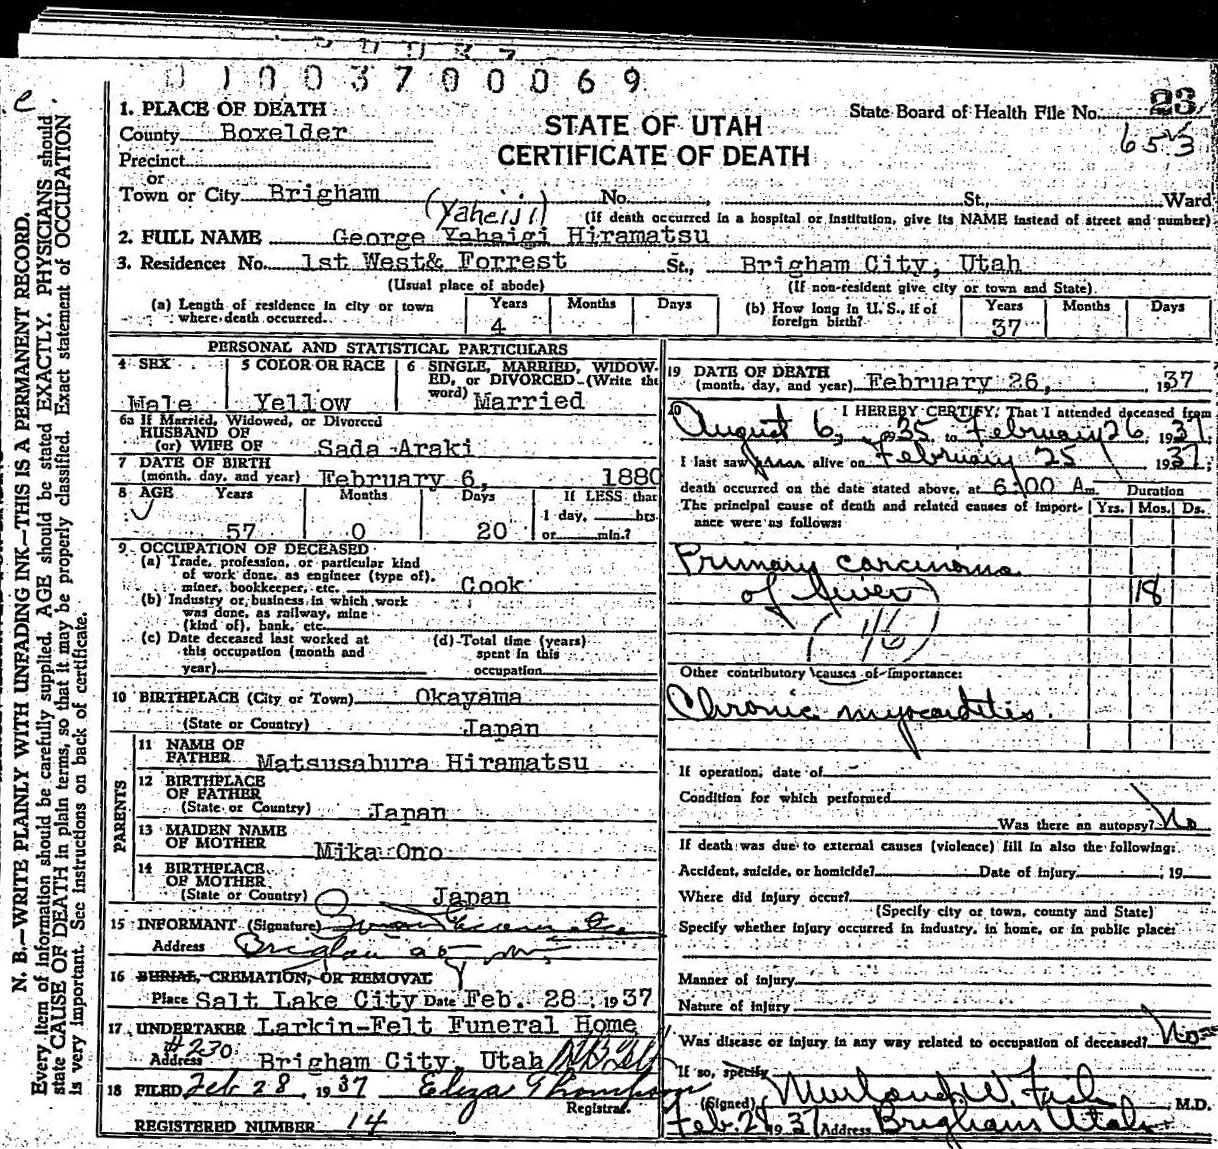 0100370006 9
e.
N. B.—WRITE PLAINLY WITH UNFADING INK—THIS IS A PERMANENT RECORD.
Every item of information should be carefully supplied. AGE should be stated EXACTLY. PHYSICIANS should
state CAUSE OF DEATH in plain terms, so that it may be properly classified. Exact statement of OCCUPATION
is very important. See instructions on back of certificate.
STATE OF UTAH
CERTIFICATE OF DEATH
State Board of Health File No. 23
653
1. PLACE OF DEATH
County Boxelder
Precinct
or
Town or City Brigham No. St., Ward
(If death occurred in a hospital or institution, give its NAME instead of street and number)
(Yaheiji)
2. FULL NAME George Yahaigi Hiramatsu
3. Residence: No. 1st West& Forrest St., Brigham City, Utah
(Usual place of abode) (If non-resident give city or town and State)
(a) Length of residence in city or town where death occurred. Years 4 Months Days
(b) How long in U. S., if of foreign birth? Years 37 Months Days
PERSONAL AND STATISTICAL PARTICULARS
4 SEX Male
5 COLOR OR RACE Yellow
6 SINGLE, MARRIED, WIDOWED, or DIVORCED (Write the word) Married
6a If Married, Widowed, or Divorced
HUSBAND OF
(or) WIFE OF Sada Araki
7 DATE OF BIRTH
(month, day, and year) February 6, 1880
8 AGE Years 57 Months 0 Days 20 If LESS than 1 day, hrs. or min.?
9. OCCUPATION OF DECEASED
(a) Trade, profession, or particular kind
of work done, as engineer (type of),
miner, bookkeeper, etc. Cook
(b) Industry or business in which work
was done, as railway, mine
(kind of), bank, etc.
(c) Date deceased last worked at
this occupation (month and
year)
(d) Total time (years)
spent in this
occupation
10 BIRTHPLACE (City or Town) Okayama
(State or Country) Japan
PARENTS
11 NAME OF
FATHER Matsusabura Hiramatsu
12 BIRTHPLACE
OF FATHER
(State or Country) Japan
13 MAIDEN NAME
OF MOTHER Mika Ono
14 BIRTHPLACE
OF MOTHER
(State or Country) Japan
15 INFORMANT (Signature)
Address
16 BURIAL, CREMATION, OR REMOVAL
Place Salt Lake City Date Feb. 28 1937
17 UNDERTAKER Larkin-Felt Funeral Home
#230
Address Brigham City, Utah
18 FILED Feb 28, 1937 Eliza Thompson
Registrar.
REGISTERED NUMBER 14
19 DATE OF DEATH
(month, day, and year) February 26, 1937
20 I HEREBY CERTIFY, That I attended deceased from
August 6, 1935 to February 26 1937;
I last saw him alive on February 25 1937;
death occurred on the date stated above, at 6:00 Am. Duration
The principal cause of death and related causes of importance were as follows: Yrs. Mos. Ds.
Primary carcinoma
of liver 18
Other contributory causes of importance:
Chronic myocarditis.
If operation, date of
Condition for which performed
Was there an autopsy? No
If death was due to external causes (violence) fill in also the following:
Accident, suicide, or homicide? Date of injury , 19
Where did injury occur?
(Specify city or town, county and State)
Specify whether injury occurred in industry, in home, or in public place:
Manner of injury
Nature of injury
Was disease or injury in any way related to occupation of deceased? No
If so, specify
(Signed) W. M.D.
Feb. 1937 Address Brigham Utah